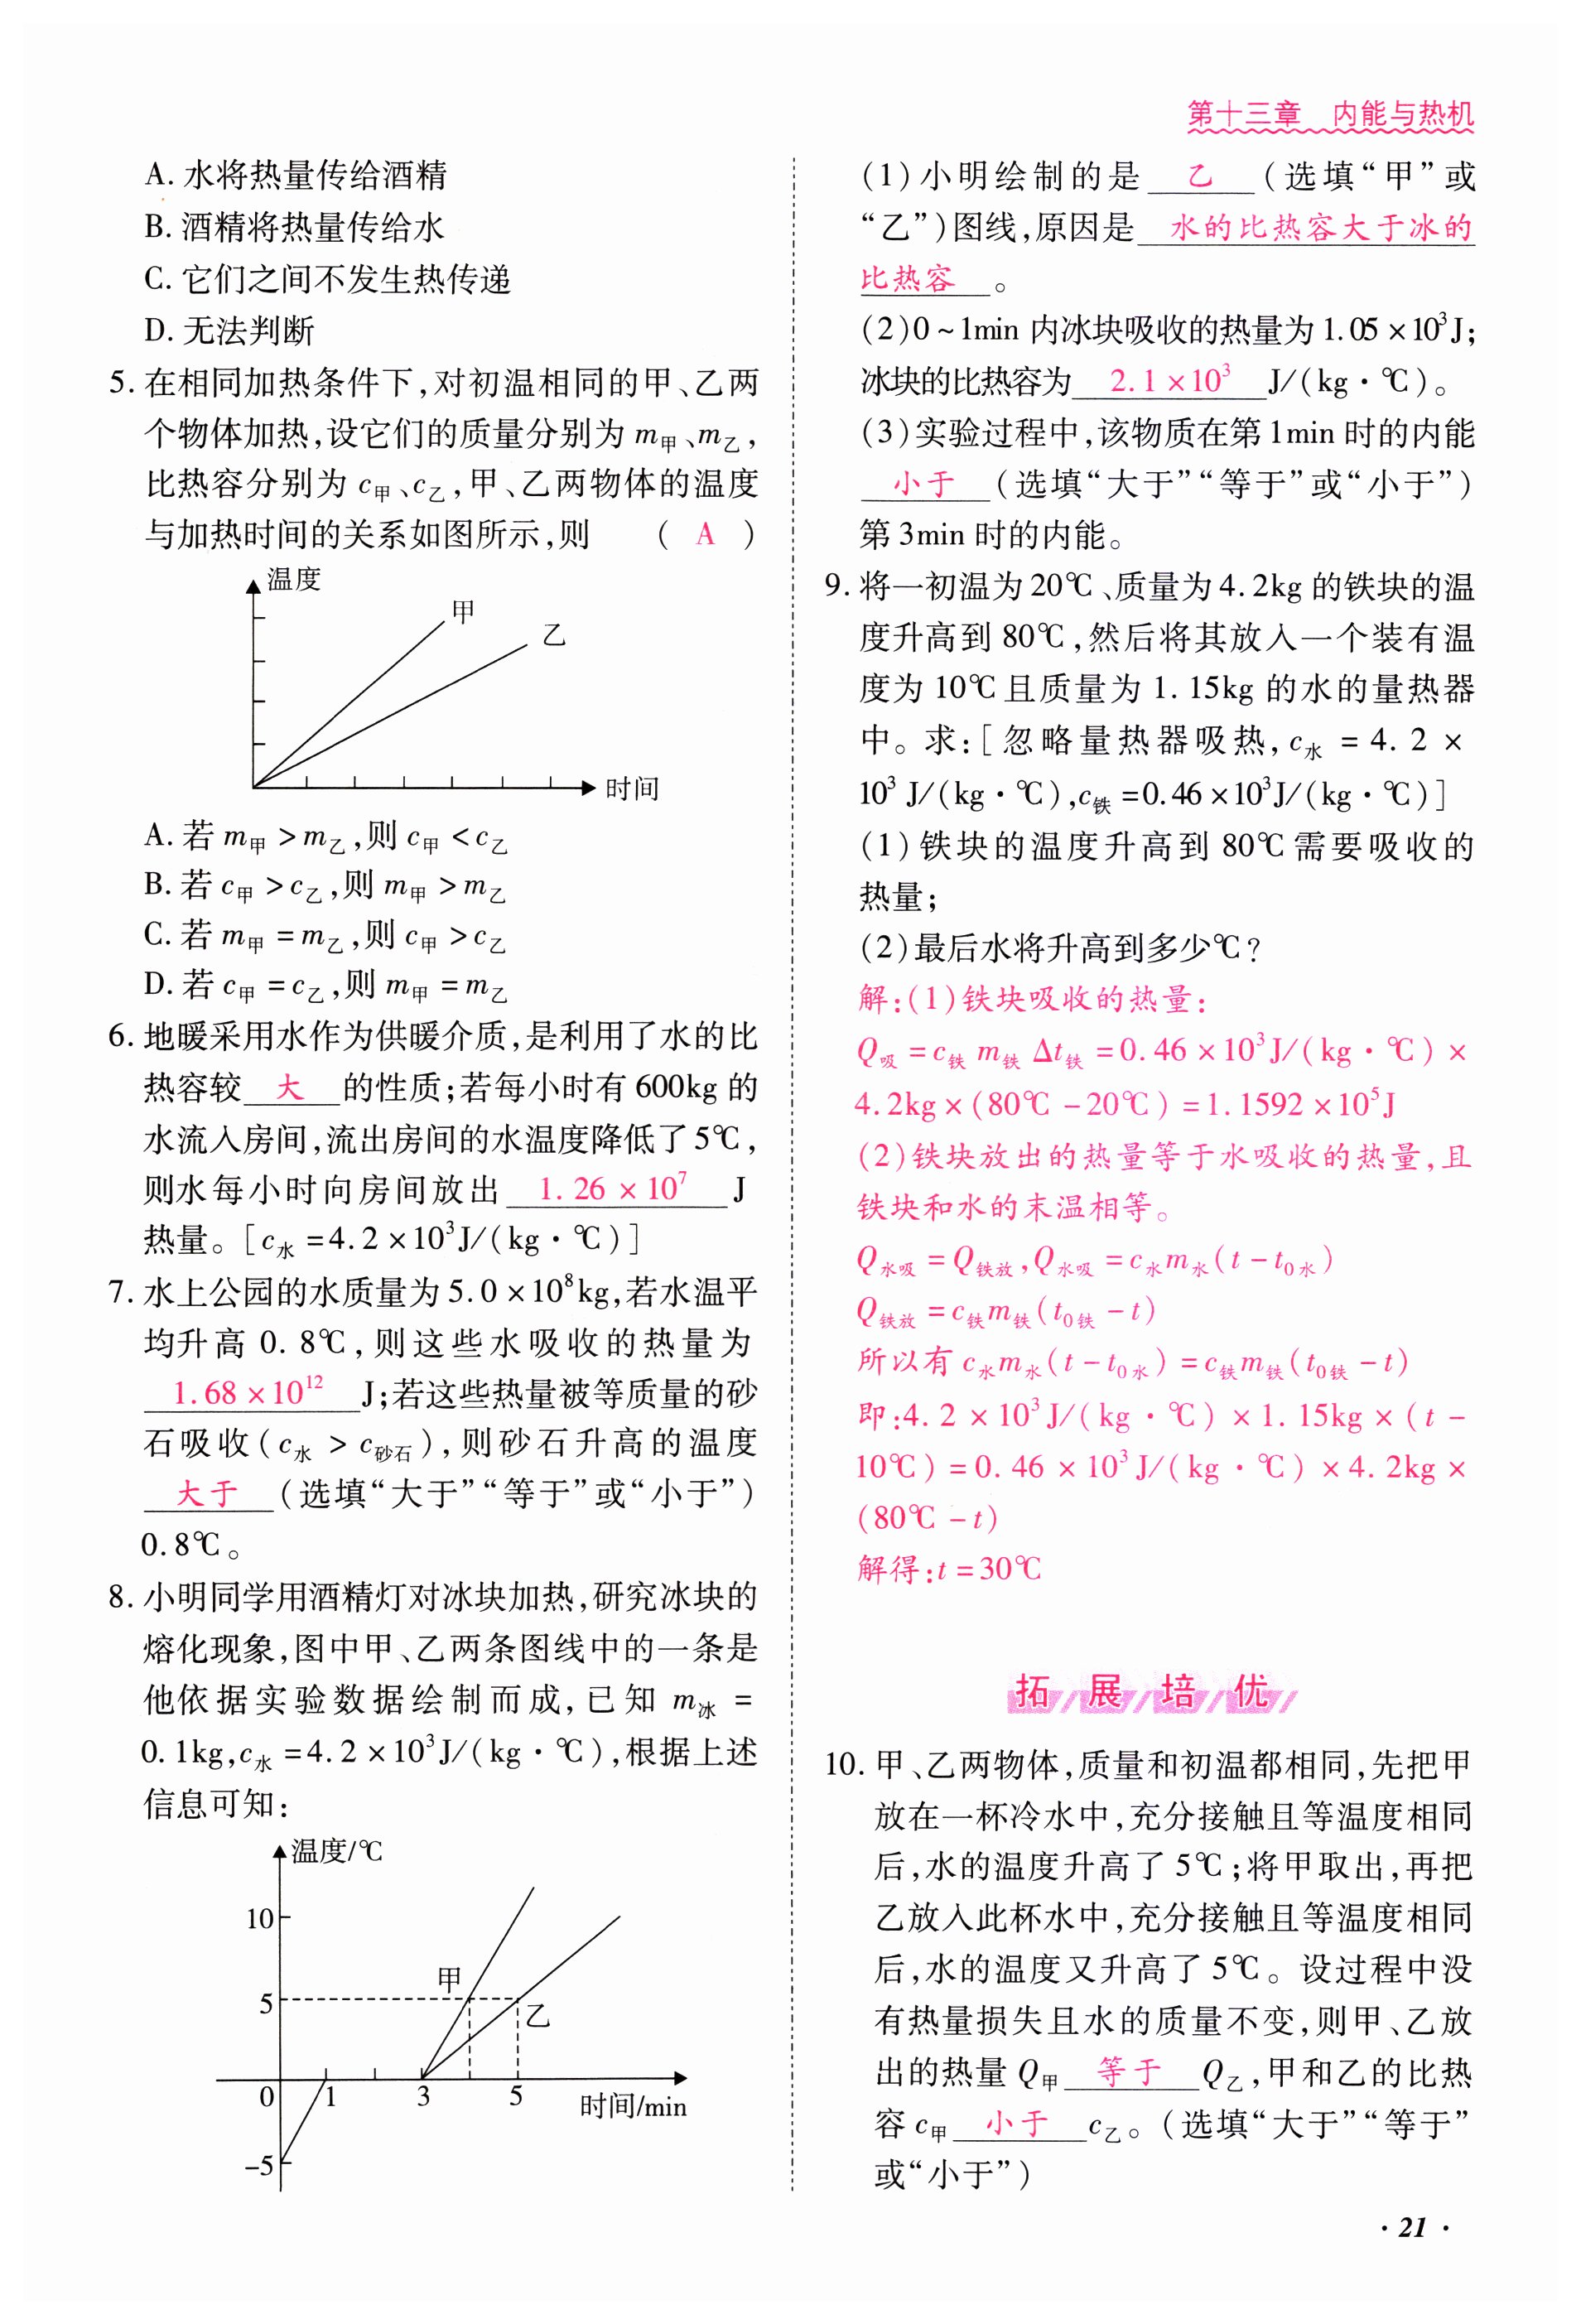 第十三章 内能与热机
A. 水将热量传给酒精
B. 酒精将热量传给水
C. 它们之间不发生热传递
D. 无法判断
5. 在相同加热条件下,对初温相同的甲、乙两
个物体加热,设它们的质量分别为 m甲、m乙,
比热容分别为 c甲、c乙,甲、乙两物体的温度
与加热时间的关系如图所示,则 ( A )
温度
甲
乙
时间
A. 若 m甲 > m乙,则 c甲 < c乙
B. 若 c甲 > c乙,则 m甲 > m乙
C. 若 m甲 = m乙,则 c甲 > c乙
D. 若 c甲 = c乙,则 m甲 = m乙
6. 地暖采用水作为供暖介质,是利用了水的比
热容较 大 的性质;若每小时有 600kg 的
水流入房间,流出房间的水温度降低了 5℃,
则水每小时向房间放出 1.26 × 10⁷ J
热量。[c水 = 4.2 × 10³J/(kg · ℃)]
7. 水上公园的水质量为 5.0 × 10⁸kg,若水温平
均升高 0.8℃,则这些水吸收的热量为
1.68 × 10¹² J;若这些热量被等质量的砂
石吸收(c水 > c砂石),则砂石升高的温度
大于 (选填“大于”“等于”或“小于”)
0.8℃。
8. 小明同学用酒精灯对冰块加热,研究冰块的
熔化现象,图中甲、乙两条图线中的一条是
他依据实验数据绘制而成,已知 m冰 =
0.1kg,c水 = 4.2 × 10³J/(kg · ℃),根据上述
信息可知:
温度/℃
10
甲
5
乙
0 1 3 5 时间/min
-5
(1)小明绘制的是 乙 (选填“甲”或
“乙”)图线,原因是 水的比热容大于冰的
比热容 。
(2)0 ~ 1min 内冰块吸收的热量为 1.05 × 10³J;
冰块的比热容为 2.1 × 10³ J/(kg · ℃)。
(3)实验过程中,该物质在第 1min 时的内能
小于 (选填“大于”“等于”或“小于”)
第 3min 时的内能。
9. 将一初温为 20℃、质量为 4.2kg 的铁块的温
度升高到 80℃,然后将其放入一个装有温
度为 10℃ 且质量为 1.15kg 的水的量热器
中。求:[忽略量热器吸热,c水 = 4.2 ×
10³ J/(kg · ℃),c铁 = 0.46 × 10³J/(kg · ℃)]
(1)铁块的温度升高到 80℃ 需要吸收的
热量;
(2)最后水将升高到多少℃?
解:(1)铁块吸收的热量:
Q吸 = c铁 m铁 Δt铁 = 0.46 × 10³J/(kg · ℃) ×
4.2kg × (80℃ - 20℃) = 1.1592 × 10⁵J
(2)铁块放出的热量等于水吸收的热量,且
铁块和水的末温相等。
Q水吸 = Q铁放,Q水吸 = c水m水(t - t0水)
Q铁放 = c铁m铁(t0铁 - t)
所以有 c水m水(t - t0水) = c铁m铁(t0铁 - t)
即:4.2 × 10³J/(kg · ℃) × 1.15kg × (t -
10℃) = 0.46 × 10³J/(kg · ℃) × 4.2kg ×
(80℃ - t)
解得:t = 30℃
拓展培优
10. 甲、乙两物体,质量和初温都相同,先把甲
放在一杯冷水中,充分接触且等温度相同
后,水的温度升高了 5℃;将甲取出,再把
乙放入此杯水中,充分接触且等温度相同
后,水的温度又升高了 5℃。设过程中没
有热量损失且水的质量不变,则甲、乙放
出的热量 Q甲 等于 Q乙,甲和乙的比热
容 c甲 小于 c乙。(选填“大于”“等于”
或“小于”)
· 21 ·